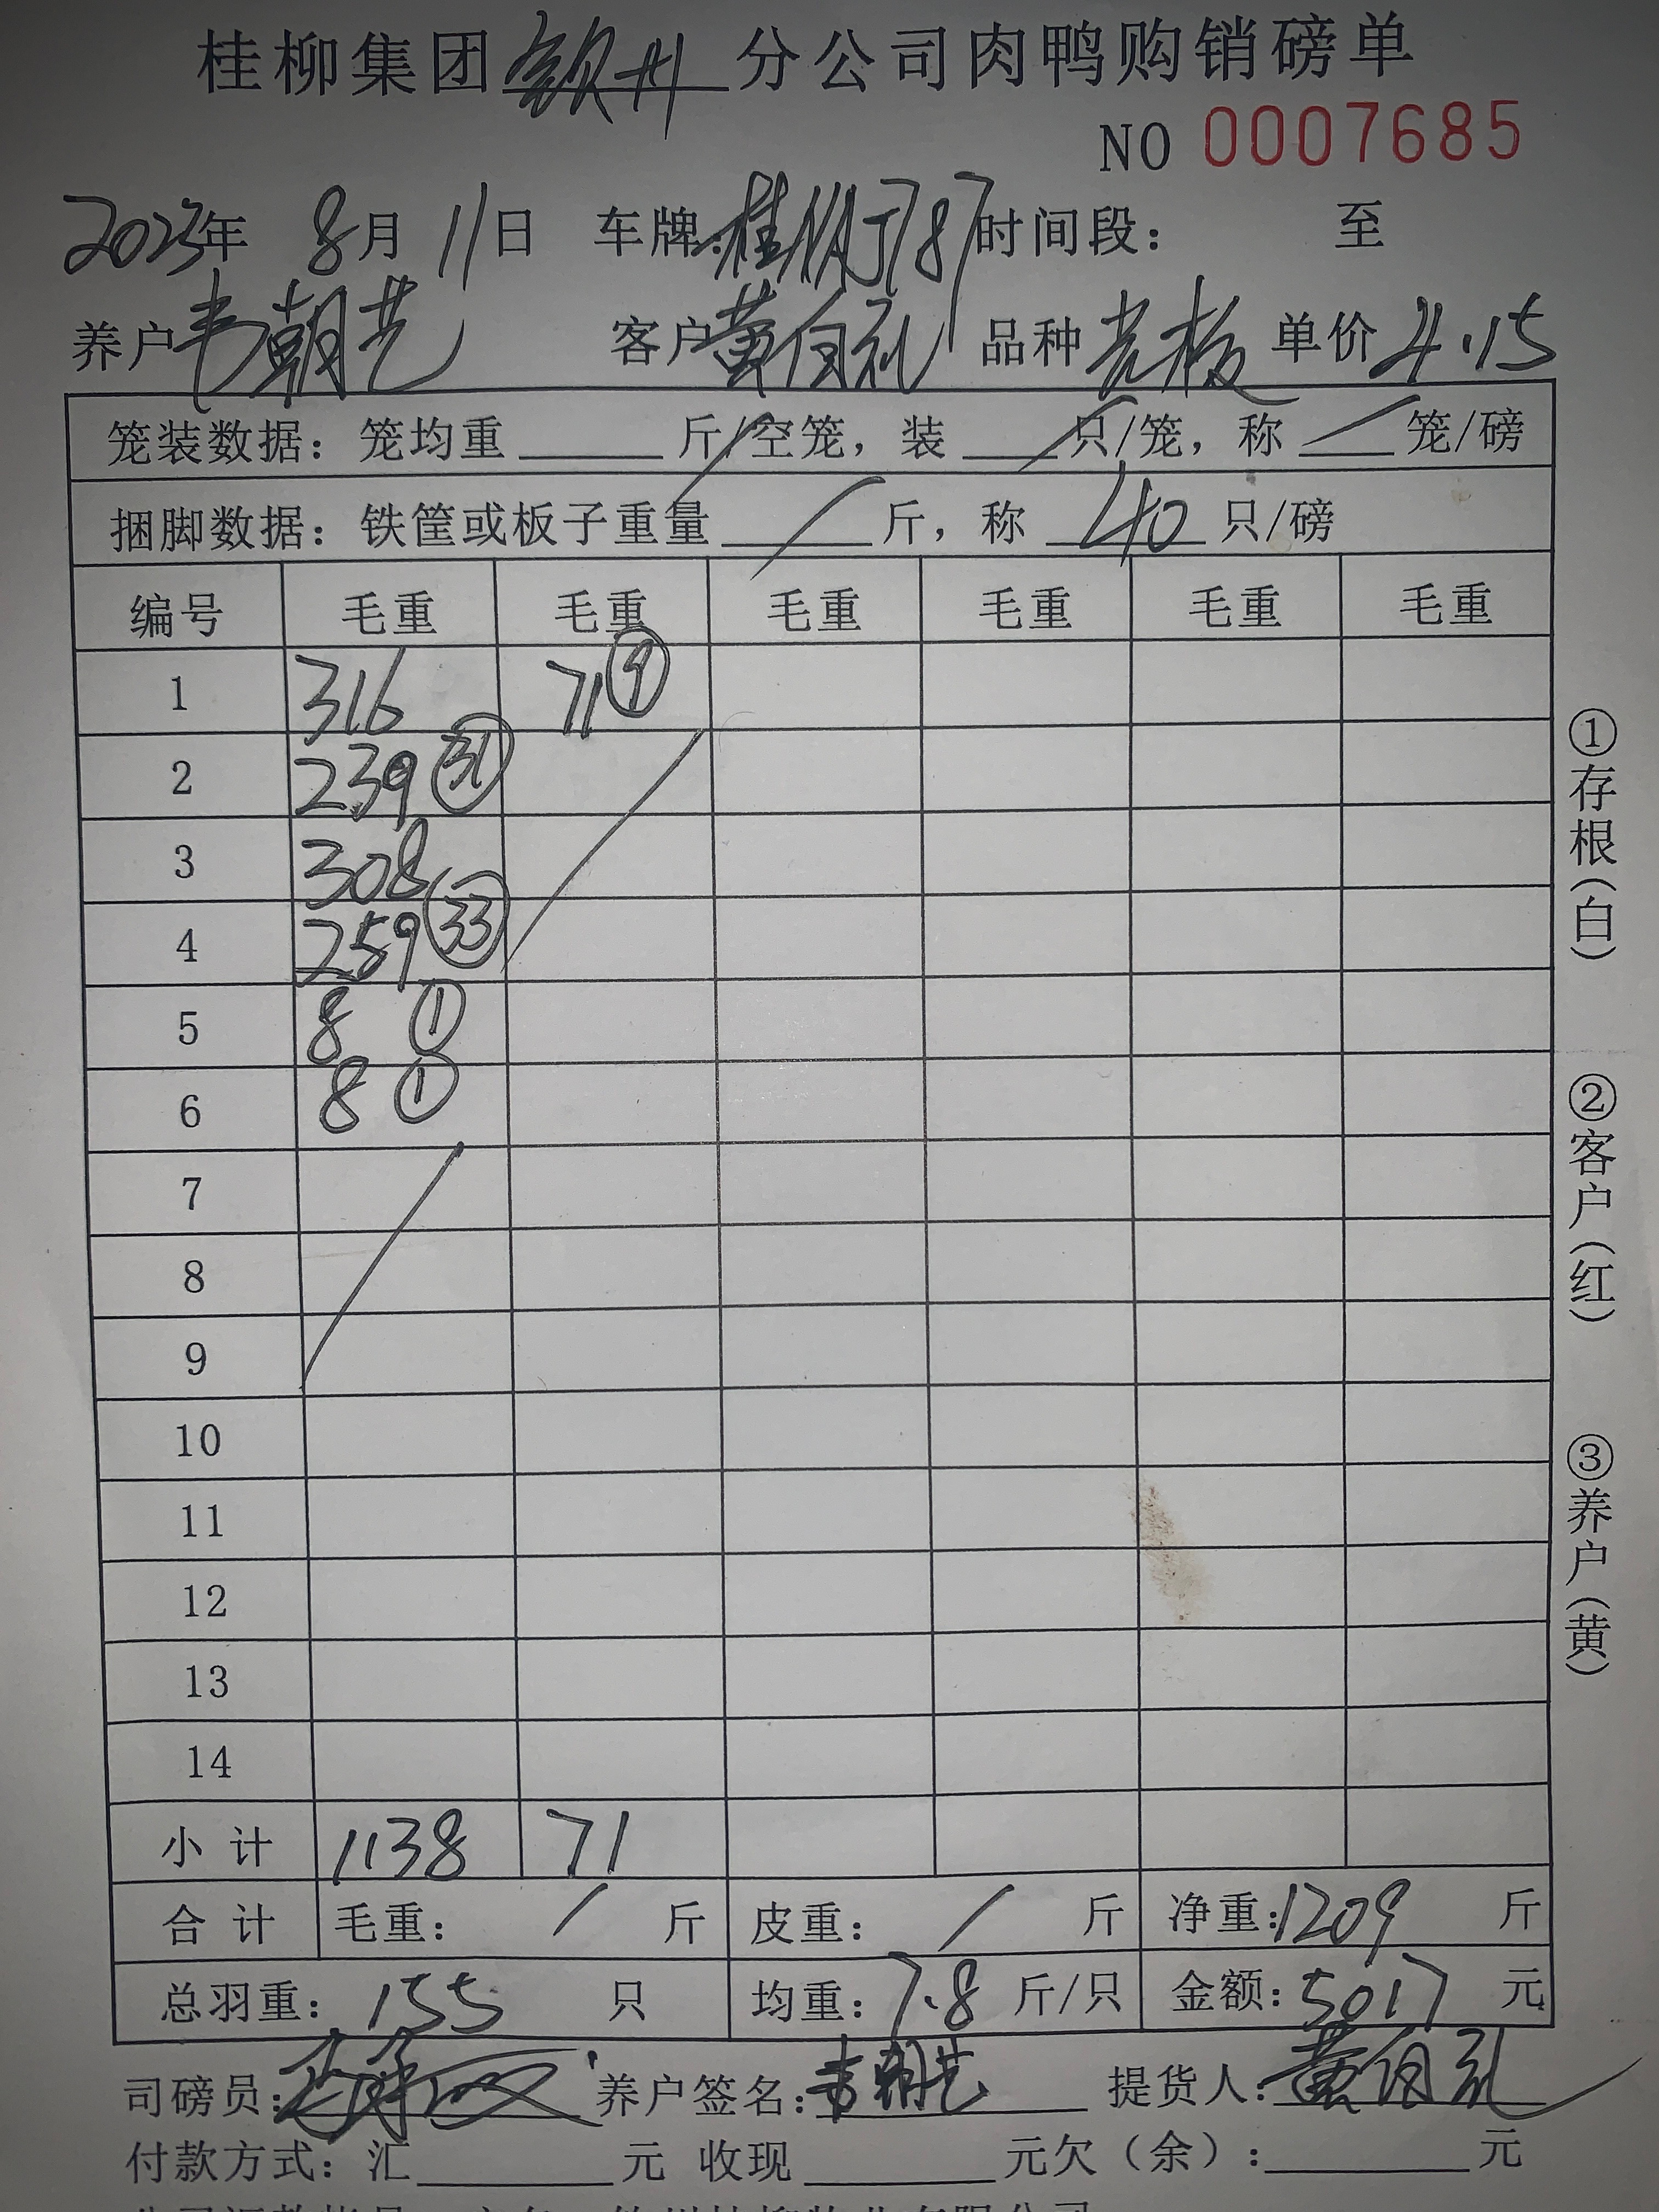 桂柳集团钦州分公司肉鸭购销磅单
NO 0007685
2023年 8月 11日 车牌: 时间段: 至
养户韦朝艺 客户黄伯礼 品种 单价4.15
笼装数据: 笼均重 斤/空笼, 装 只/笼, 称 笼/磅
捆脚数据: 铁筐或板子重量 斤, 称 40 只/磅
编号 毛重 毛重 毛重 毛重 毛重 毛重
1 316 71 ⑨
2 239 ㉛
3 308
4 259 ㉝
5 8 ①
6 8 ①
7
8
9
10
11
12
13
14
小计 1138 71
合计 毛重: / 斤 皮重: / 斤 净重:1209 斤
总羽重: 155 只 均重: 7.8 斤/只 金额: 5017 元
司磅员: 养户签名:韦朝艺 提货人:黄伯礼
付款方式: 汇 元 收现 元欠(余): 元
①存根(白)
②客户(红)
③养户(黄)